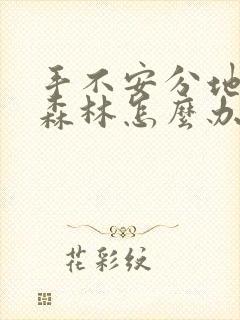 手不安分地
森林怎麼办
花彩纹